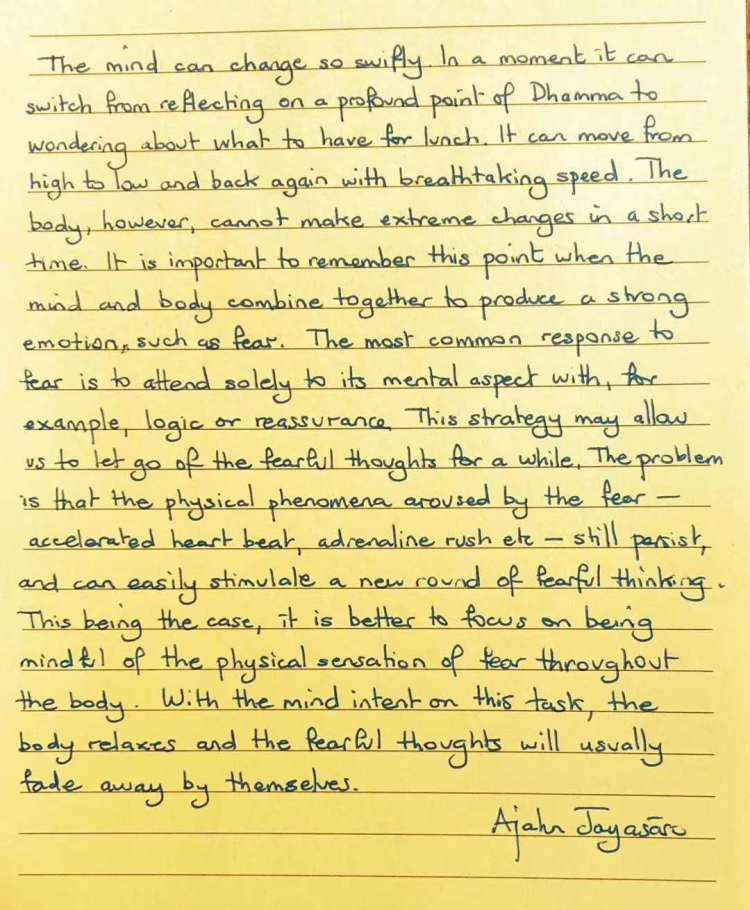 The mind can change so swiftly. In a moment it can
switch from reflecting on a profound point of Dhamma to
wondering about what to have for lunch. It can move from
high to low and back again with breathtaking speed. The
body, however, cannot make extreme changes in a short
time. It is important to remember this point when the
mind and body combine together to produce a strong
emotion, such as fear. The most common response to
fear is to attend solely to its mental aspect with, for
example, logic or reassurance. This strategy may allow
us to let go of the fearful thoughts for a while. The problem
is that the physical phenomena aroused by the fear —
accelerated heart beat, adrenaline rush etc — still persist,
and can easily stimulate a new round of fearful thinking.
This being the case, it is better to focus on being
mindful of the physical sensation of fear throughout
the body. With the mind intent on this task, the
body relaxes and the fearful thoughts will usually
fade away by themselves.
Ajahn Jayasāro